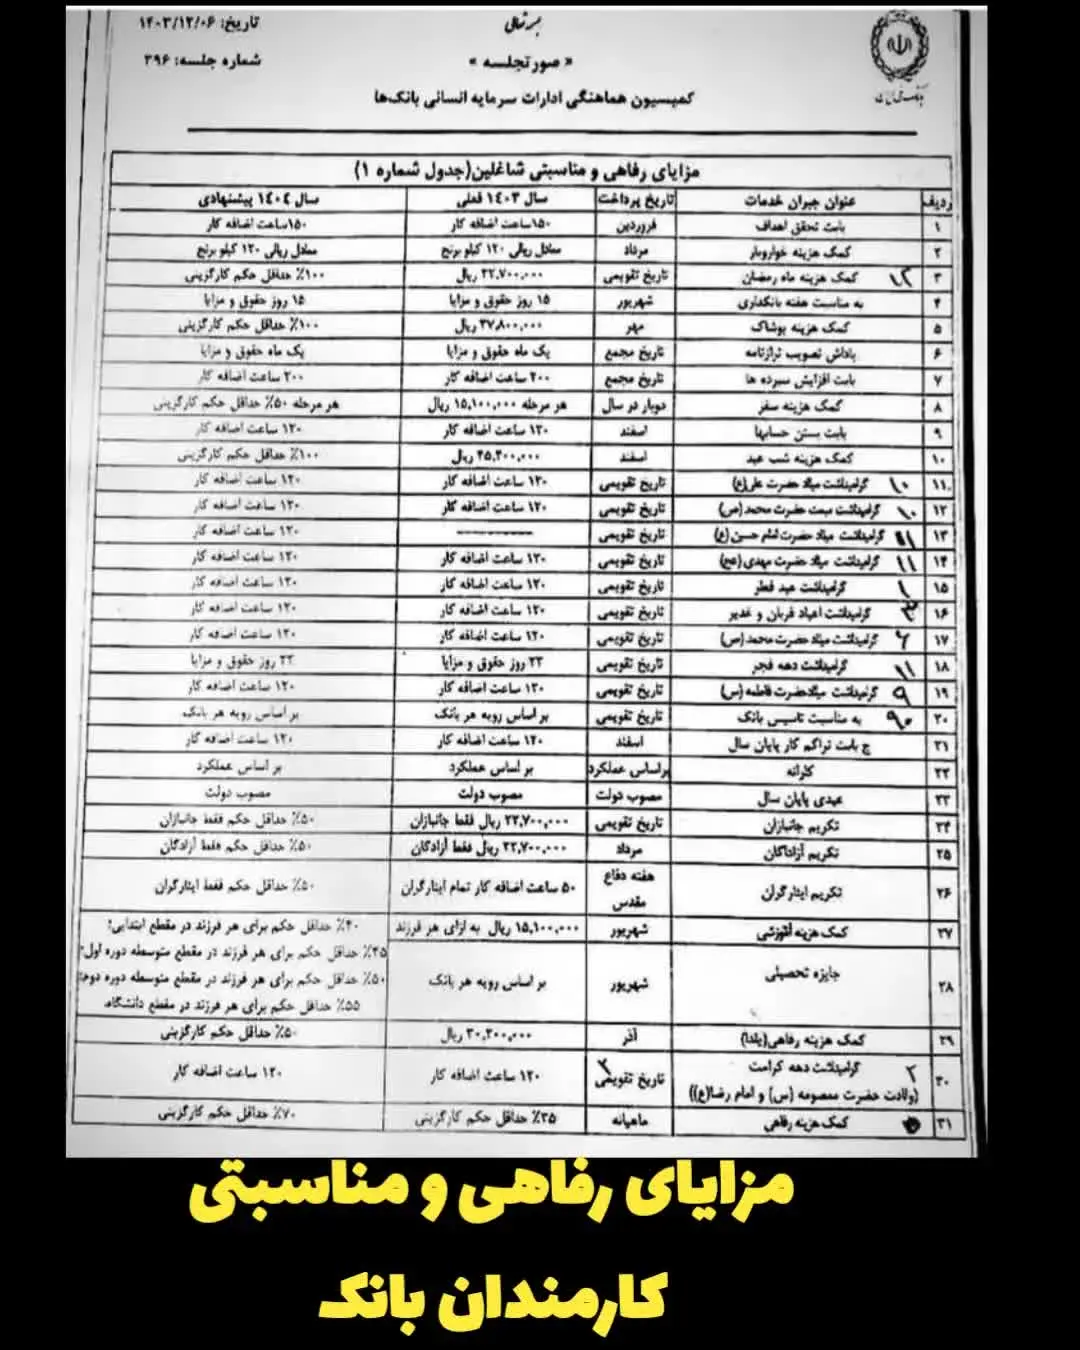 تاریخ: ۱۴۰۳/۱۲/۰۶
بسمه تعالی
« صورتجلسه »
شماره جلسه: ۳۹۶
کمیسیون هماهنگی ادارات سرمایه انسانی بانک‌ها
مزایای رفاهی و مناسبتی شاغلین(جدول شماره ۱)
ردیف عنوان جبران خدمات تاریخ پرداخت سال ۱۴۰۳ فعلی سال ۱۴۰۴ پیشنهادی
۱ بابت تحقق اهداف فروردین ۱۵۰ساعت اضافه کار ۱۵۰ساعت اضافه کار
۲ کمک هزینه خواروبار مرداد معادل ریالی ۱۲۰ کیلو برنج معادل ریالی ۱۲۰ کیلو برنج
۳ ۱۲ کمک هزینه ماه رمضان تاریخ تقویمی ۲۲,۷۰۰,۰۰۰ ریال ۱۰۰٪ حداقل حکم کارگزینی
۴ به مناسبت هفته بانکداری شهریور ۱۵ روز حقوق و مزایا ۱۵ روز حقوق و مزایا
۵ کمک هزینه پوشاک مهر ۳۷,۸۰۰,۰۰۰ ریال ۱۰۰٪ حداقل حکم کارگزینی
۶ پاداش تصویب ترازنامه تاریخ مجمع یک ماه حقوق و مزایا یک ماه حقوق و مزایا
۷ بابت افزایش سپرده ها تاریخ مجمع ۲۰۰ ساعت اضافه کار ۲۰۰ ساعت اضافه کار
۸ کمک هزینه سفر دوبار در سال هر مرحله ۱۵,۱۰۰,۰۰۰ ریال هر مرحله ۵۰٪ حداقل حکم کارگزینی
۹ بابت بستن حسابها اسفند ۱۲۰ ساعت اضافه کار ۱۲۰ ساعت اضافه کار
۱۰ کمک هزینه شب عید اسفند ۴۵,۴۰۰,۰۰۰ ریال ۱۰۰٪ حداقل حکم کارگزینی
۱۱ ۱۰ گرامیداشت میلاد حضرت علی(ع) تاریخ تقویمی ۱۲۰ ساعت اضافه کار ۱۲۰ ساعت اضافه کار
۱۲ ۱۰ گرامیداشت مبعث حضرت محمد(ص) تاریخ تقویمی ۱۲۰ ساعت اضافه کار ۱۲۰ ساعت اضافه کار
۱۳ ۱۱ گرامیداشت میلاد حضرت امام حسین (ع) تاریخ تقویمی ---------- ۱۲۰ ساعت اضافه کار
۱۴ ۱۱ گرامیداشت میلاد حضرت مهدی(عج) تاریخ تقویمی ۱۲۰ ساعت اضافه کار ۱۲۰ ساعت اضافه کار
۱۵ ۱ گرامیداشت عید فطر تاریخ تقویمی ۱۲۰ ساعت اضافه کار ۱۲۰ ساعت اضافه کار
۱۶ ۳ گرامیداشت اعیاد قربان و غدیر تاریخ تقویمی ۱۲۰ ساعت اضافه کار ۱۲۰ ساعت اضافه کار
۱۷ ۶ گرامیداشت میلاد حضرت محمد (ص) تاریخ تقویمی ۱۲۰ ساعت اضافه کار ۱۲۰ ساعت اضافه کار
۱۸ ۱۱ گرامیداشت دهه فجر تاریخ تقویمی ۲۲ روز حقوق و مزایا ۲۲ روز حقوق و مزایا
۱۹ ۹ گرامیداشت میلادحضرت فاطمه (س) تاریخ تقویمی ۱۲۰ ساعت اضافه کار ۱۲۰ ساعت اضافه کار
۲۰ به مناسبت تاسیس بانک تاریخ تقویمی بر اساس رویه هر بانک بر اساس رویه هر بانک
۲۱ بابت تراکم کار پایان سال اسفند ۱۲۰ ساعت اضافه کار ۱۲۰ ساعت اضافه کار
۲۲ کارانه براساس عملکرد بر اساس عملکرد بر اساس عملکرد
۲۳ عیدی پایان سال مصوب دولت مصوب دولت مصوب دولت
۲۴ تکریم جانبازان تاریخ تقویمی ۲۲,۷۰۰,۰۰۰ ریال فقط جانبازان ۵۰٪ حداقل حکم فقط جانبازان
۲۵ تکریم آزادگان مرداد ۲۲,۷۰۰,۰۰۰ ریال فقط آزادگان ۵۰٪ حداقل حکم فقط آزادگان
۲۶ تکریم ایثارگران هفته دفاع مقدس ۵۰ ساعت اضافه کار تمام ایثارگران ۵۰٪ حداقل حکم فقط ایثارگران
۲۷ کمک هزینه آموزشی شهریور ۱۵,۱۰۰,۰۰۰ ریال به ازای هر فرزند ۴۰٪ حداقل حکم برای هر فرزند در مقطع ابتدایی؛
۲۸ جایزه تحصیلی شهریور بر اساس رویه هر بانک ۴۵٪ حداقل حکم برای هر فرزند در مقطع متوسطه دوره اول؛
۵۰٪ حداقل حکم برای هر فرزند در مقطع متوسطه دوره دوم؛
۵۵٪ حداقل حکم برای هر فرزند در مقطع دانشگاه.
۲۹ کمک هزینه رفاهی(یلدا) آذر ۳۰,۲۰۰,۰۰۰ ریال ۵۰٪ حداقل حکم کارگزینی
۳۰ ۲ گرامیداشت دهه کرامت تاریخ تقویمی ۱۲۰ ساعت اضافه کار ۱۲۰ ساعت اضافه کار
(ولادت حضرت معصومه (س) و امام رضا(ع))
۳۱ کمک هزینه رفاهی ماهیانه ۳۵٪ حداقل حکم کارگزینی ۷۰٪ حداقل حکم کارگزینی
مزایای رفاهی و مناسبتی
کارمندان بانک